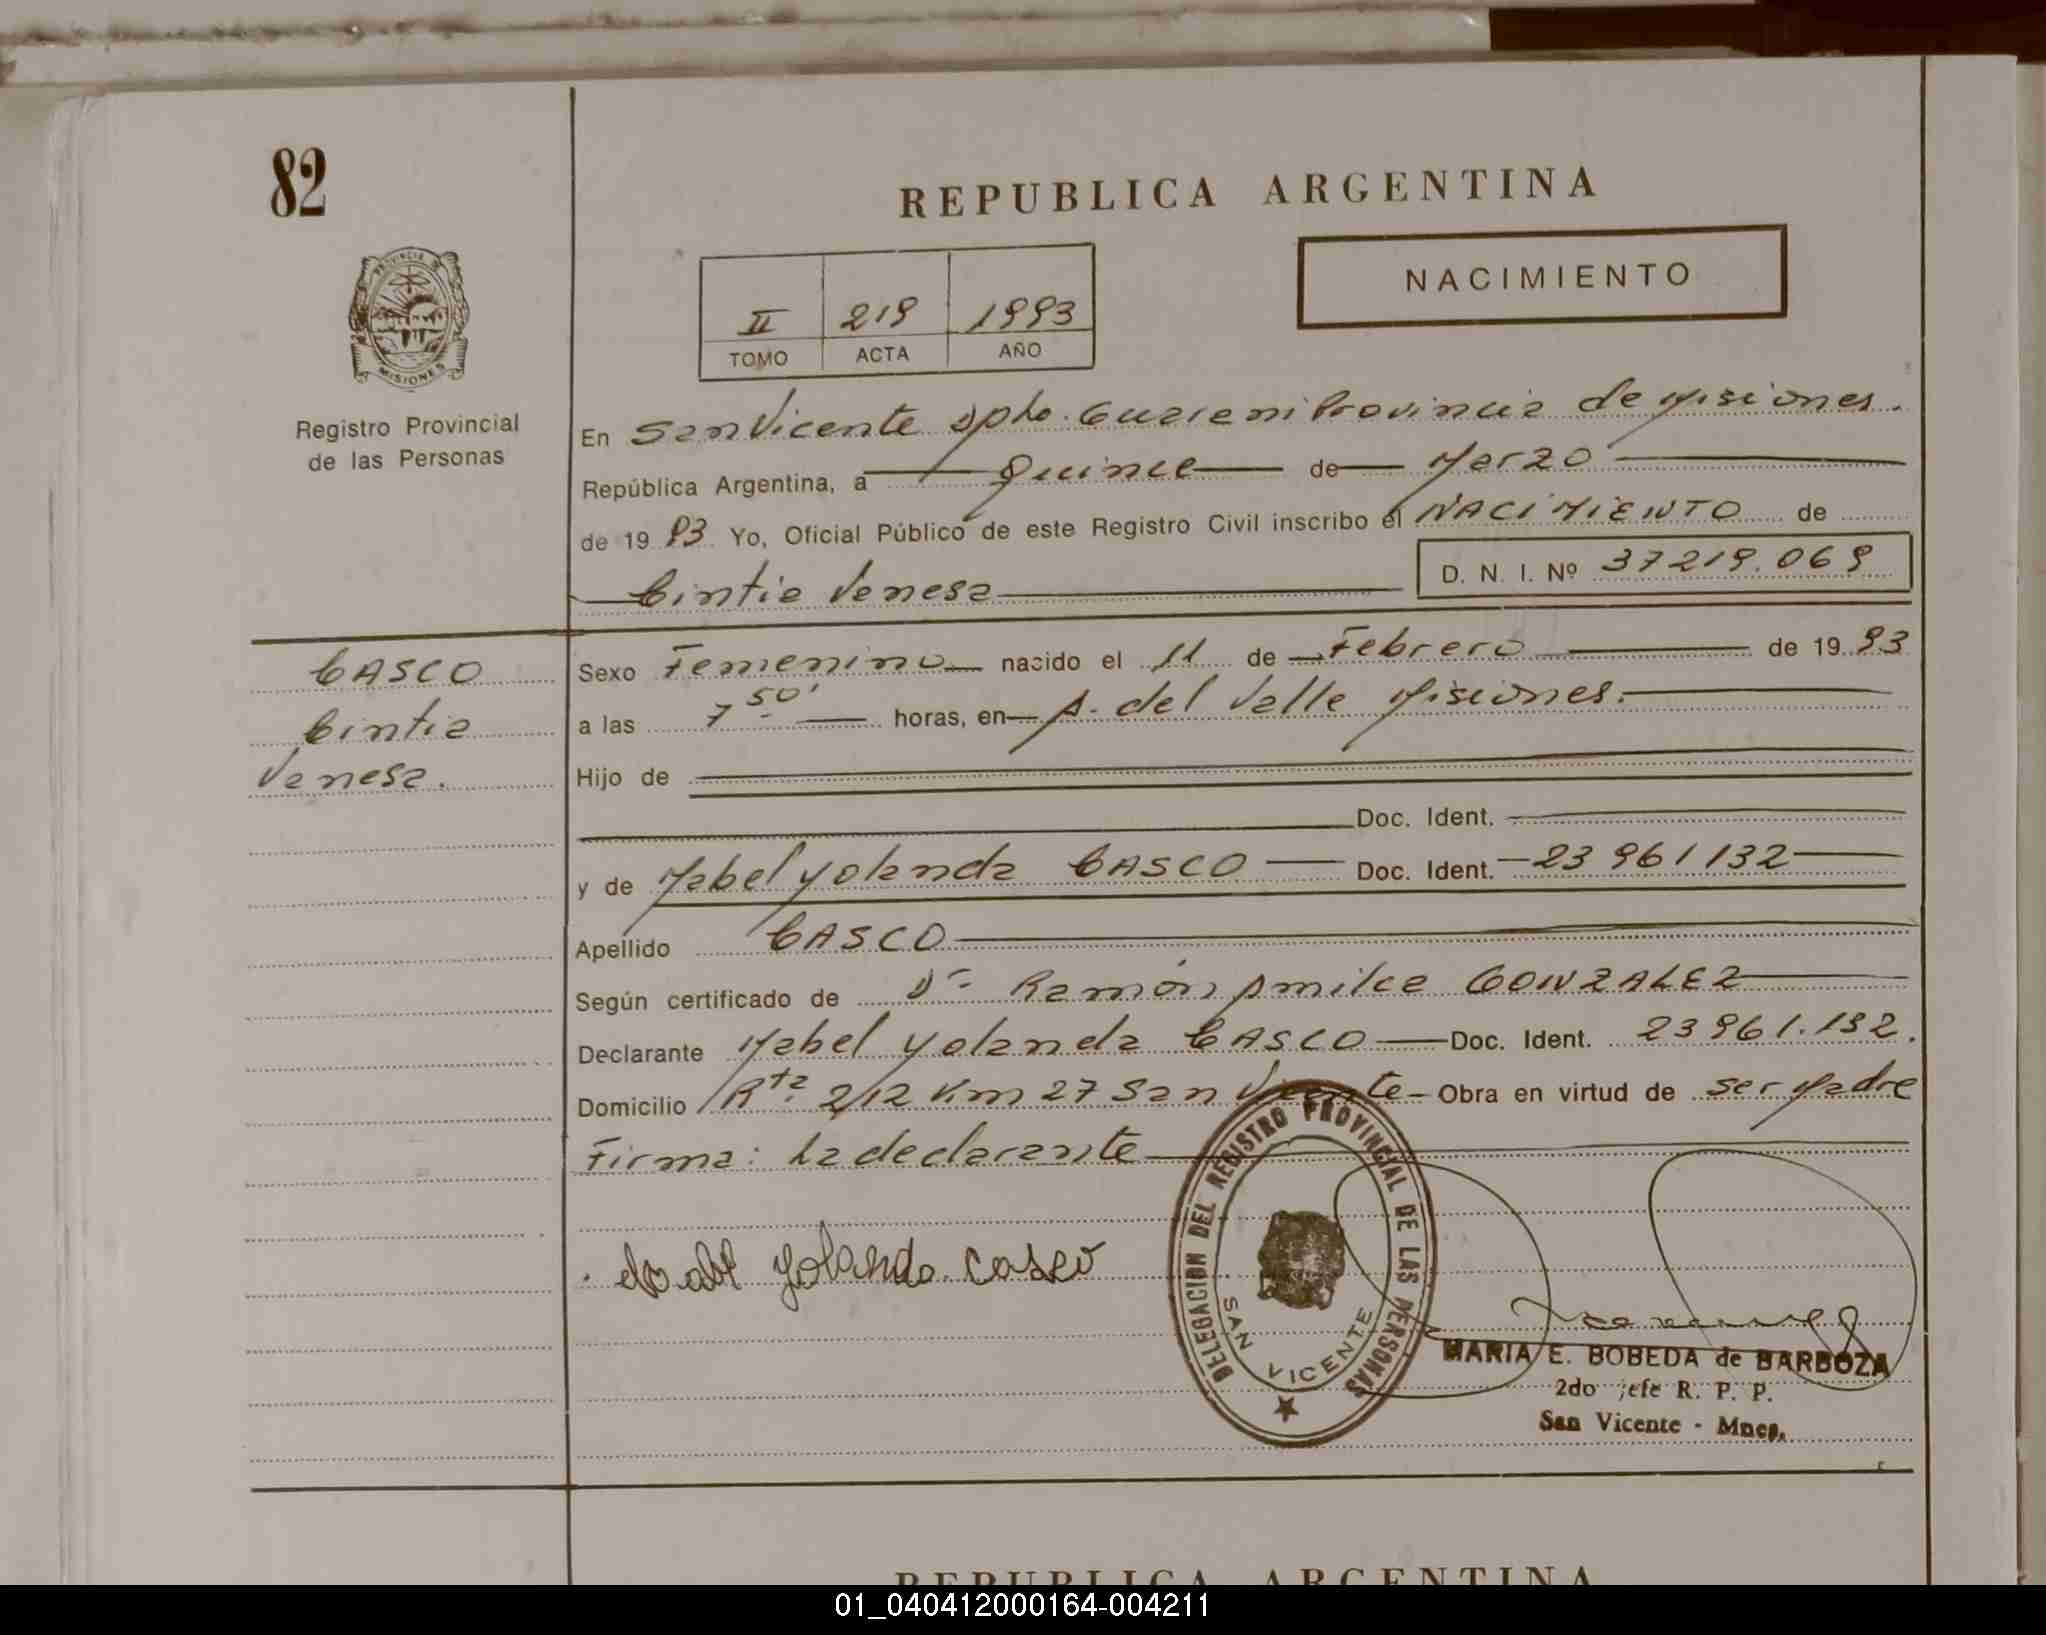 82
REPUBLICA ARGENTINA
NACIMIENTO
II 219 1993
TOMO ACTA AÑO
PROVINCIA DE
MISIONES
Registro Provincial
de las Personas
En San Vicente Dpto. Guarani Provincia de Misiones.
República Argentina, a Quince de Marzo
de 19 93 Yo, Oficial Público de este Registro Civil inscribo el NACIMIENTO de
Cintia Vanesa D. N. I. Nº 37219.069
CASCO
Cintia
Vanesa.
Sexo Femenino nacido el 11 de Febrero de 19 93
a las 7 50' horas, en A. del Valle Misiones.
Hijo de
Doc. Ident.
y de Mabel Yolanda CASCO Doc. Ident. 23 961 132
Apellido CASCO
Según certificado de Dr. Ramón Amilca GONZALEZ
Declarante Mabel Yolanda CASCO Doc. Ident. 23 961.132.
Domicilio Rta. 212 Km 27 San Vicente Obra en virtud de ser Madre
Firma: La declarante
Mabel Yolanda Casco
DELEGACION DEL REGISTRO PROVINCIAL DE LAS PERSONAS
SAN VICENTE
MARIA E. BOBEDA de BARBOZA
2do jefe R. P. P.
San Vicente - Mnes.
REPUBLICA ARGENTINA
01_040412000164-004211